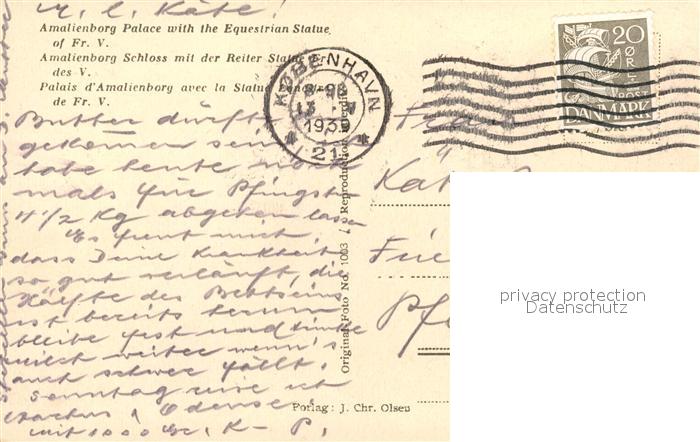 M. l. Käte!
Amalienborg Palace with the Equestrian Statue
of Fr. V.
Amalienborg Schloss mit der Reiter Statue
des V.
Palais d'Amalienborg avec la Statue
de Fr. V.
KØBENHAVN
193
21
20
ØRE
POST
DANMARK
Butter dürfte
gekommen sein
habe heute noch
mals für Pfingsten
4 1/2 Kg abgehen lassen
Es freut mich
dass Deine Krankheit
so gut verläuft, die
Hälfte des Bettseins
ist bereits herum
bleibe fest und trinke
Milch weiter wenn's
auch schwer fällt.
Sonntag
Odense.
mit 1000 K - P.
Original-Foto No. 1003 / Reproduction interdite
Forlag: J. Chr. Olsen
Frau
Kät
Pf
privacy protection
Datenschutz